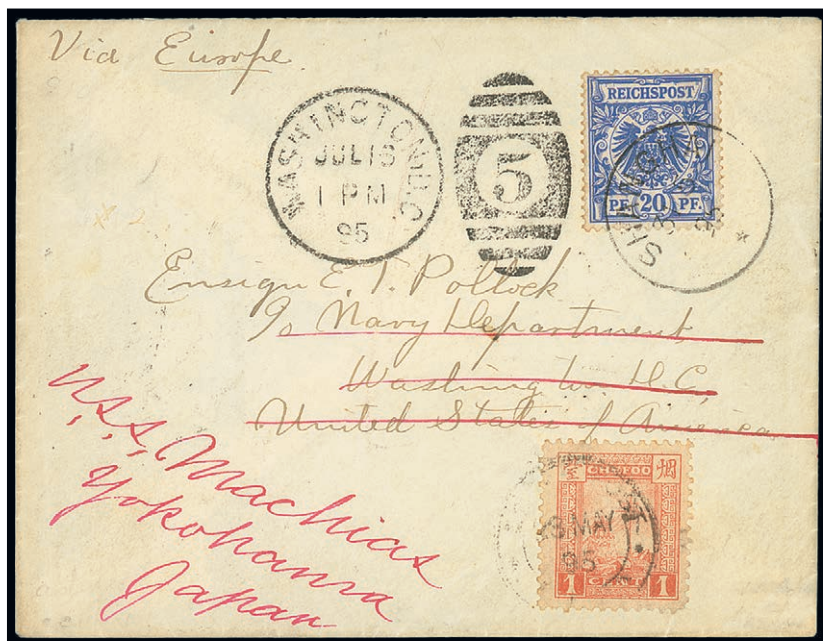 Via Europe
WASHINGTON D.C.
JUL 13
1 PM
95
5
REICHSPOST
PF. 20 PF.
SHANGHAI
Ensign E. T. Pollock
c/o Navy Department
Washington D.C.
United States of America
U.S.S. Machias
Yokohama
Japan
CHEFOO 烟
MAY
95
1 CENT 1